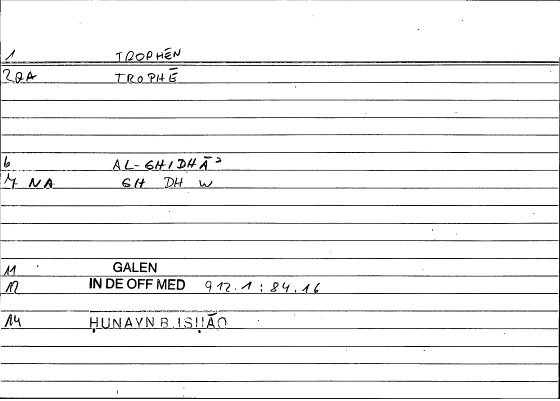 1 TROPHĒN
2 QA TROPHĒ
6 AL-GHIDHĀʾ
7 NA GH DH W
11 GALEN
12 IN DE OFF MED 912.1:84.16
14 ḤUNAYN B.ISḤĀQ